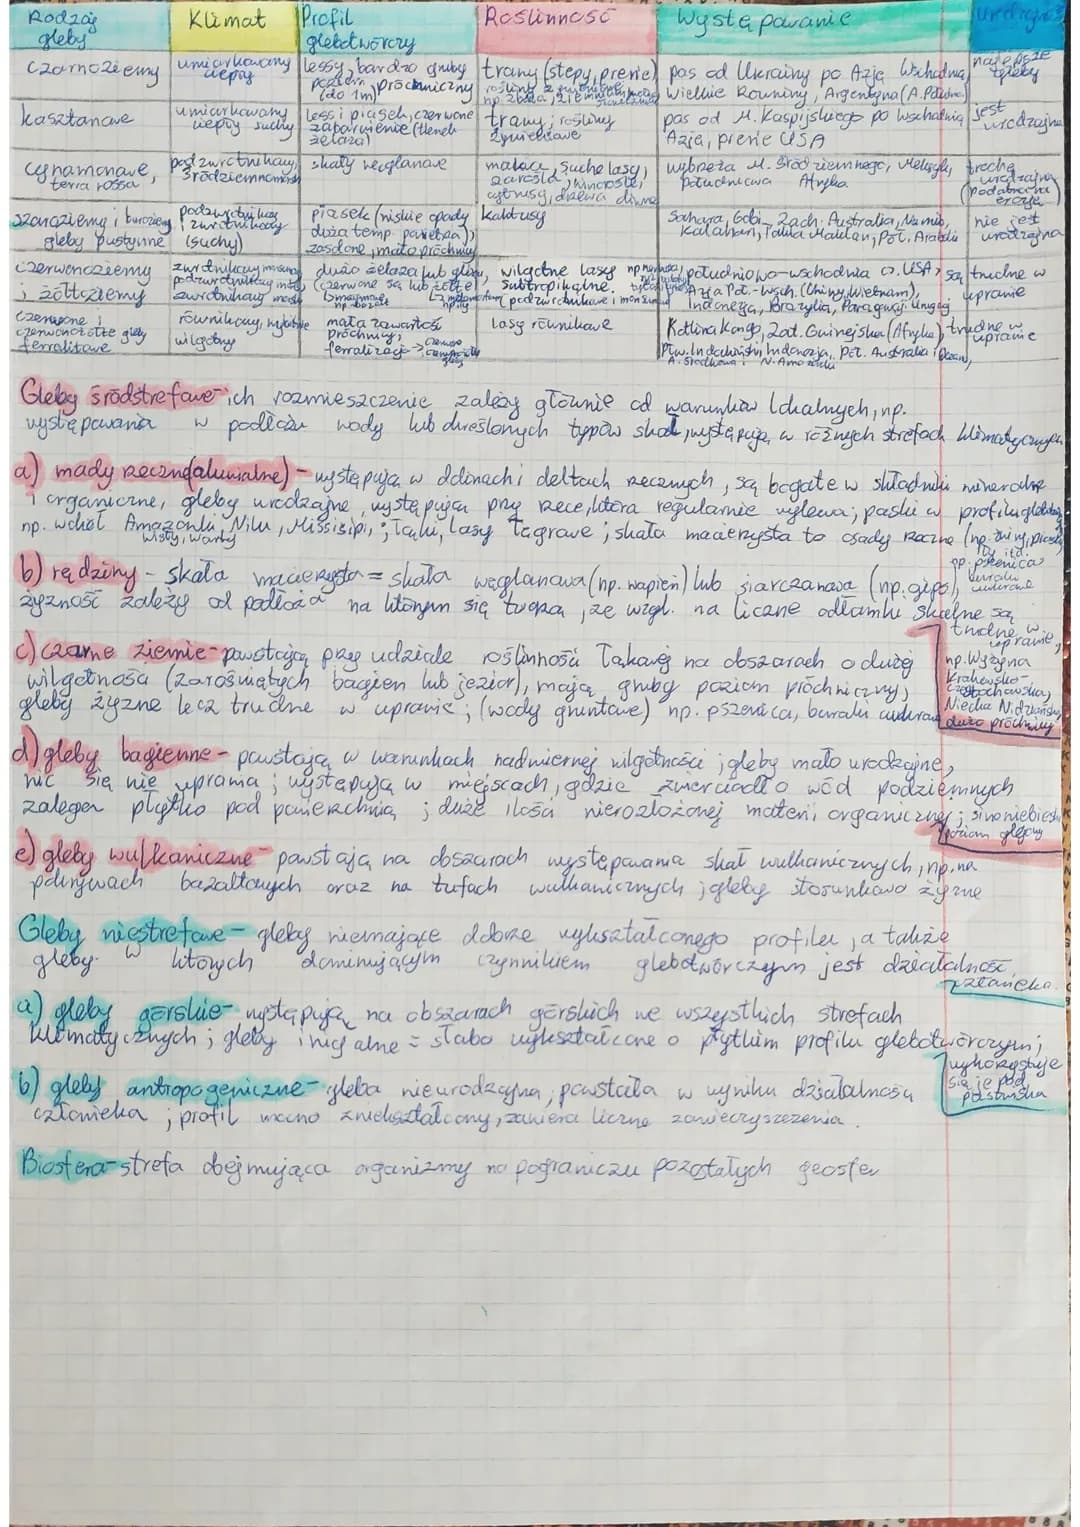 Rodzaj gleby | Klimat | Profil glebotwórczy | Roślinność | Występowanie
czarnoziemy | umiarkowany ciepły | lessy, bardzo gruby poziom próchniczny (do 1m) | trawy (stepy, prerie) rośliny np. zboża, ziemniaki | pas od Ukrainy po Azję Wschodnią, Wielkie Równiny, Argentyna (A. Połudn.) | najlepsze gleby
kasztanowe | umiarkowany ciepły suchy | less i piasek, czerwone zabarwienie (tlenek żelaza) | trawy; rośliny żywicowe | pas od M. Kaspijskiego po wschodnią Azję, prerie USA | jest urodzajna
cynamonowe, terra rossa | podzwrotnikowy, śródziemnomorski | skały węglanowe | makia, suche lasy, zarośla, winorośle, cytrusy, drzewa oliwne | wybrzeża M. Śródziemnego, Meksyk, południowa Afryka | trochę urodzajna (podatna na erozję)
szaroziemy i buroziemy gleby pustynne | podzwrotnikowy i zwrotnikowy (suchy) | piasek (niskie opady duża temp. powietrza), zasolone, mało próchnicy | kaktusy | Sahara, Gobi, Zach. Australia, Namib, Kalahari, Takla Makan, Pół. Arabski | nie jest urodzajna
czerwonoziemy i żółtoziemy | zwrotnikowy monsunowy podzwrotnikowy zwrotnikowy morski | dużo żelaza lub glinu, (czerwone są lub żółte) np. bazalt | wilgotne lasy subtropikalne. (podzwrotnikowe i monsunowe) | południowo-wschodnia cz. USA, Azja Poł.-Wsch. (Chiny, Wietnam), Indonezja, Brazylia, Paragwaj, Urugwaj | są trudne w uprawie
czerwone i czerwonożółte gleby ferralitowe | równikowy, wybitnie wilgotny | mała zawartość próchnicy, ferralizacja → | lasy równikowe | Kotlina Kongo, Zat. Gwinejska (Afryka), Płw. Indochiński, Indonezja, Płt. Australia, A. Środkowa i N. Amazonki | trudne w uprawie
Gleby śródstrefowe - ich rozmieszczenie zależy głównie od warunków lokalnych, np.
występowania w podłożu wody lub określonych typów skał, występują w różnych strefach klimatycznych
a) mady rzeczne (aluwialne) - występują w dolinach i deltach rzecznych, są bogate w składniki mineralne
i organiczne, gleby urodzajne, występują przy rzece, która regularnie wylewa; paski w profilu glebowym
np. wokół Amazonki, Nilu, Missisipi, ; łąki, lasy łęgowe; skała macierzysta to osady rzeczne (np. żwiry, piaski
Wisły, Warty
iły itd.
np. pszenica buraki cukrowe
b) rędziny - skała macierzysta = skała węglanowa (np. wapień) lub siarczanowa (np. gips),
żyzność zależy od podłoża na którym się tworzą, ze wzgl. na liczne odłamki skalne są
trudne w uprawie,
np. Wyżyna
Krakowsko-
Częstochowska,
Niecka Nidziańska,
dużo próchnicy
c) czarne ziemie - powstają przy udziale roślinności łąkowej na obszarach o dużej
wilgotności (zarośniętych bagien lub jezior), mają gruby poziom próchniczny,
gleby żyzne lecz trudne w uprawie; (wody gruntowe) np. pszenica, buraki cukrowe
d) gleby bagienne - powstają w warunkach nadmiernej wilgotności; gleby mało urodzajne,
nic się nie uprawia; występują w miejscach, gdzie zwierciadło wód podziemnych
zalega płytko pod powierzchnią; duże ilości nierozłożonej materii organicznej; sinoniebieski
poziom glejowy
e) gleby wulkaniczne - powstają na obszarach występowania skał wulkanicznych, np. na
pokrywach bazaltowych oraz na tufach wulkanicznych; gleby stosunkowo żyzne
Gleby niestrefowe - gleby niemające dobrze wykształconego profilu, a także
gleby w których dominującym czynnikiem glebotwórczym jest działalność
człowieka.
a) gleby górskie - występują na obszarach górskich we wszystkich strefach
klimatycznych; gleby inicjalne = słabo wykształcone o płytkim profilu glebotwórczym;
wykorzystuje
się je pod
pastwiska
b) gleby antropogeniczne - gleba nieurodzajna, powstała w wyniku działalności
człowieka; profil mocno zniekształcony, zawiera liczne zanieczyszczenia.
Biosfera - strefa obejmująca organizmy na pograniczu pozostałych geosfer